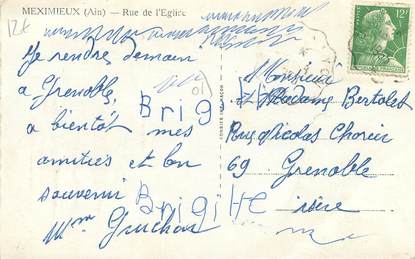 MEXIMIEUX (Ain) — Rue de l'Eglise
12€
Je rendres demain
a Grenoble,
a bientôt mes
amitiés et bon
souvenir
Mme Gruchon
01
Brig
Brigitte
COMBIER IMP. MACON
Monsieur
Madame Bertolet
Rue Nicolas Chorier
69 Grenoble
isère
12F